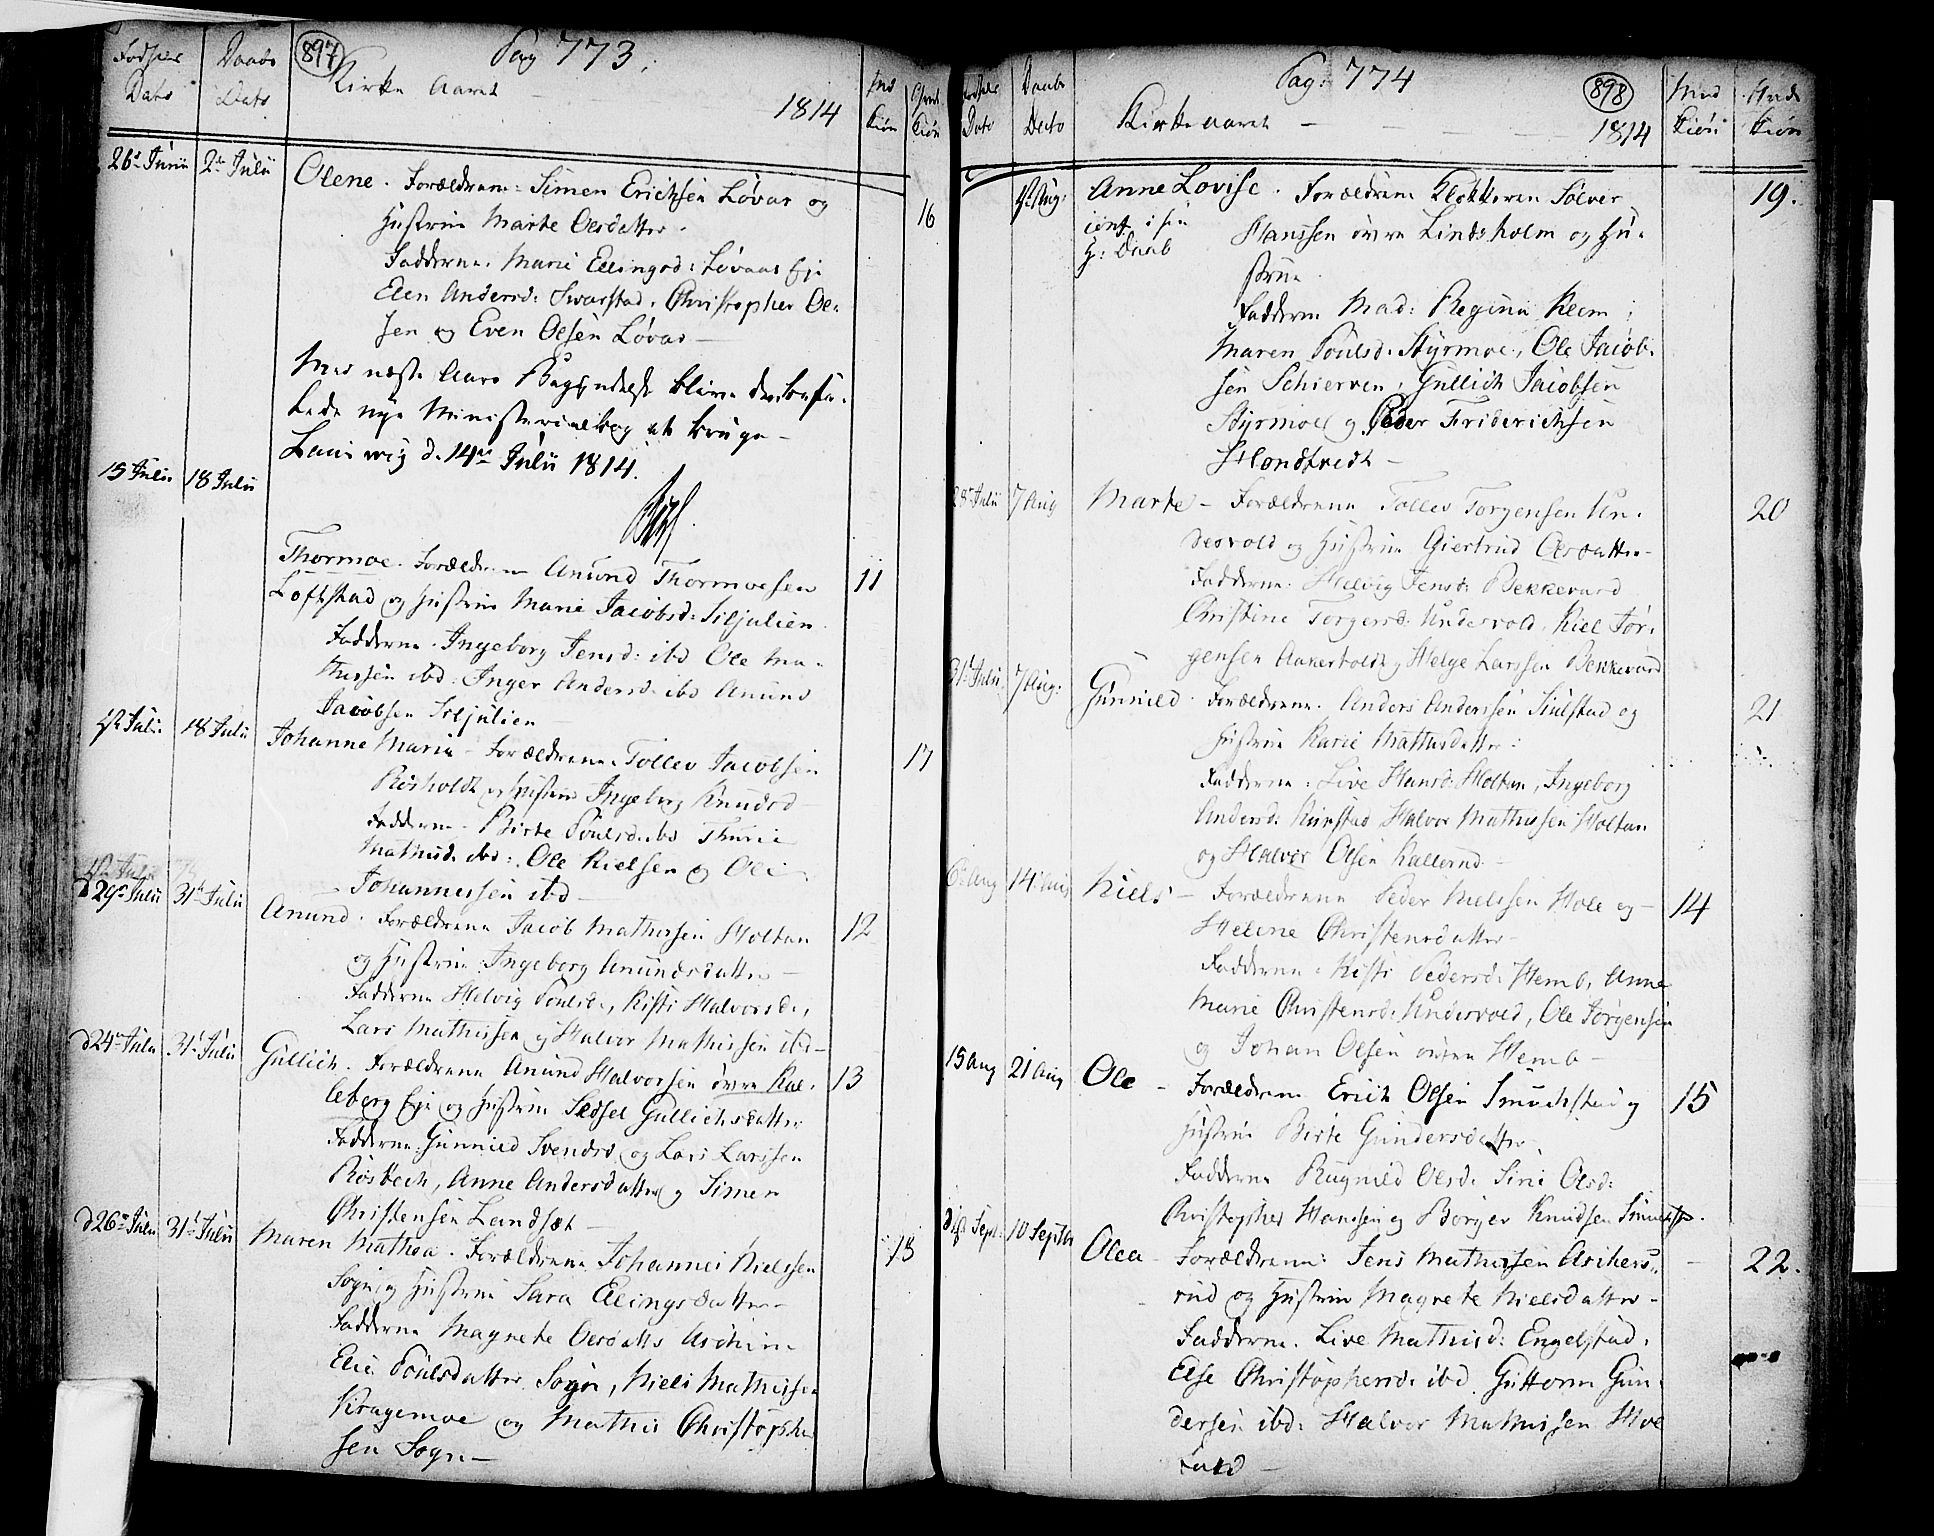 Fødsels Dato
Daabs Dato
897
Pag 773.
Kirke Aaret 1814
Kiøn
Kiøn
26de Junii 2den Julii Olene. Forældrene: Simen Erichsen Løvas og
Hustrue Marte Olsdatter. 16
Fadderne. Marie Ellingsd: Løvaas Eje
Elen Andersd: Svarstad. Christopher Ol-
sen og Even Olsen Løvas
Med næste Aars Begyndelse bliver den
lede nye Ministerialbog at bruge
Laurwig d. 14de Julii 1814.
15 Julii 18 Julii
Thormoe. Forældrene Anund Thormoesen 11
Loftstad og Hustrue Marie Jacobsd: Siljulien
Fadderne. Ingeborg Jensd: ibd Ole Ma-
thissen ibd: Inger Andersd: ibd Anund
Jacobsen Siljulien
Julii 18 Julii Johanne Maria - Forældrene. Tollev Jacobsen 17
Risholdt og Hustrue Ingeborg Knudsd
Fadderne. Birte Poulsd: ibd Thurie
Mathisd: ibd: Ole Nielsen og Ole
Johannessen ibd
d 29de Julii 31te Julii Anund. Forældrene Jacob Mathissen Holtan 12
og Hustrue Ingeborg Anundsdatter
Fadderne Helvig Poulsd:, Kisti Halvorsd:,
Lars Mathissen og Halvor Mathissen ibd
d 24de Julii 31te Julii Gullich. Forældrene Anund Halvorsen øvre Kal- 13
leberg Eje og Hustrue Sedsel Gullichsdatter
Fadderne. Gunnild Svendsd og Lars Larssen
Røsbech, Anne Andersdatter og Simen
Christensen Landsæt
d 26de Julii 31te Julii Maren Mathea. Forældrene Johannes Nielssen 18
Sogn og Hustrue Sara Ellingsdatter
Fadderne Magnete Olsdatts
Elie Poulsdatter Sogn, Niels Mathissen
Kragemoe og Mathis Christophe
sen Sogn
Fødsels Dato
Daabs Dato
Pag: 774
898
Kirke Aaret 1814
Kiøn
Kiøn
Aug: Anne Lovise. Forældrene Klokkeren Sølver 19.
conf. i sin
H: Daab
Hanssen øvre Lindsholm og Hu-
strue
Fadderne Mad: Regina Klem
Maren Poulsd: Styrmoe, Ole Jacob-
sen Schierven, Gullich Jacobsen
Styrmoe og Peder Friderichsen
28de Julii 7 Aug Marte - Forældrene Tollev Torgensen Un- 20
dersvold og Hustrue Giertrud Olsdatter
Fadderne. Helvig Jensd: Bekkevard
Christine Torgersd: Undersvold, Niel Jør-
gensen Aakerholdt og Helge Larssen Bekkevard
31te Julii 7 Aug: Gunnild. Forældrene. Anders Anderssen Sulstad og 21
Hustrue Karie Mathisdatter:
Fadderne. Live Hansd: Holtan, Ingeborg
Andersd: Halvor Mathissen Holtan
og Halvor Olsen Kallerød
6te Aug 14 Aug Niels - Forældrene Peder Nielssen Hole og 14
Helene Christensdatter
Fadderne. Kisti Pedersd: Hemb, Anne
Marie Christensd: Undersvold, Ole Jørgensen
og Johan Olsen Hemb
15 Aug 21 Aug Ole - Forældrene Erich Olsen Smuchstad og 15
Hustrue Birte Gundersdatter
Fadderne Rugnild Olsd: Siri Olsd:
Christopher Hanssen og Børger Knudsen
Sept: 10 Septbr Olea - Forældrene: Jens Mathissen Aschers- 22.
rud og Hustrue Magrete Nielsdatter
Fadderne. Live Mathisd: Engelstad.
Else Christophersd: ibd Guttorm Gun-
dersen ibd: Halvor Mathissen Hoe